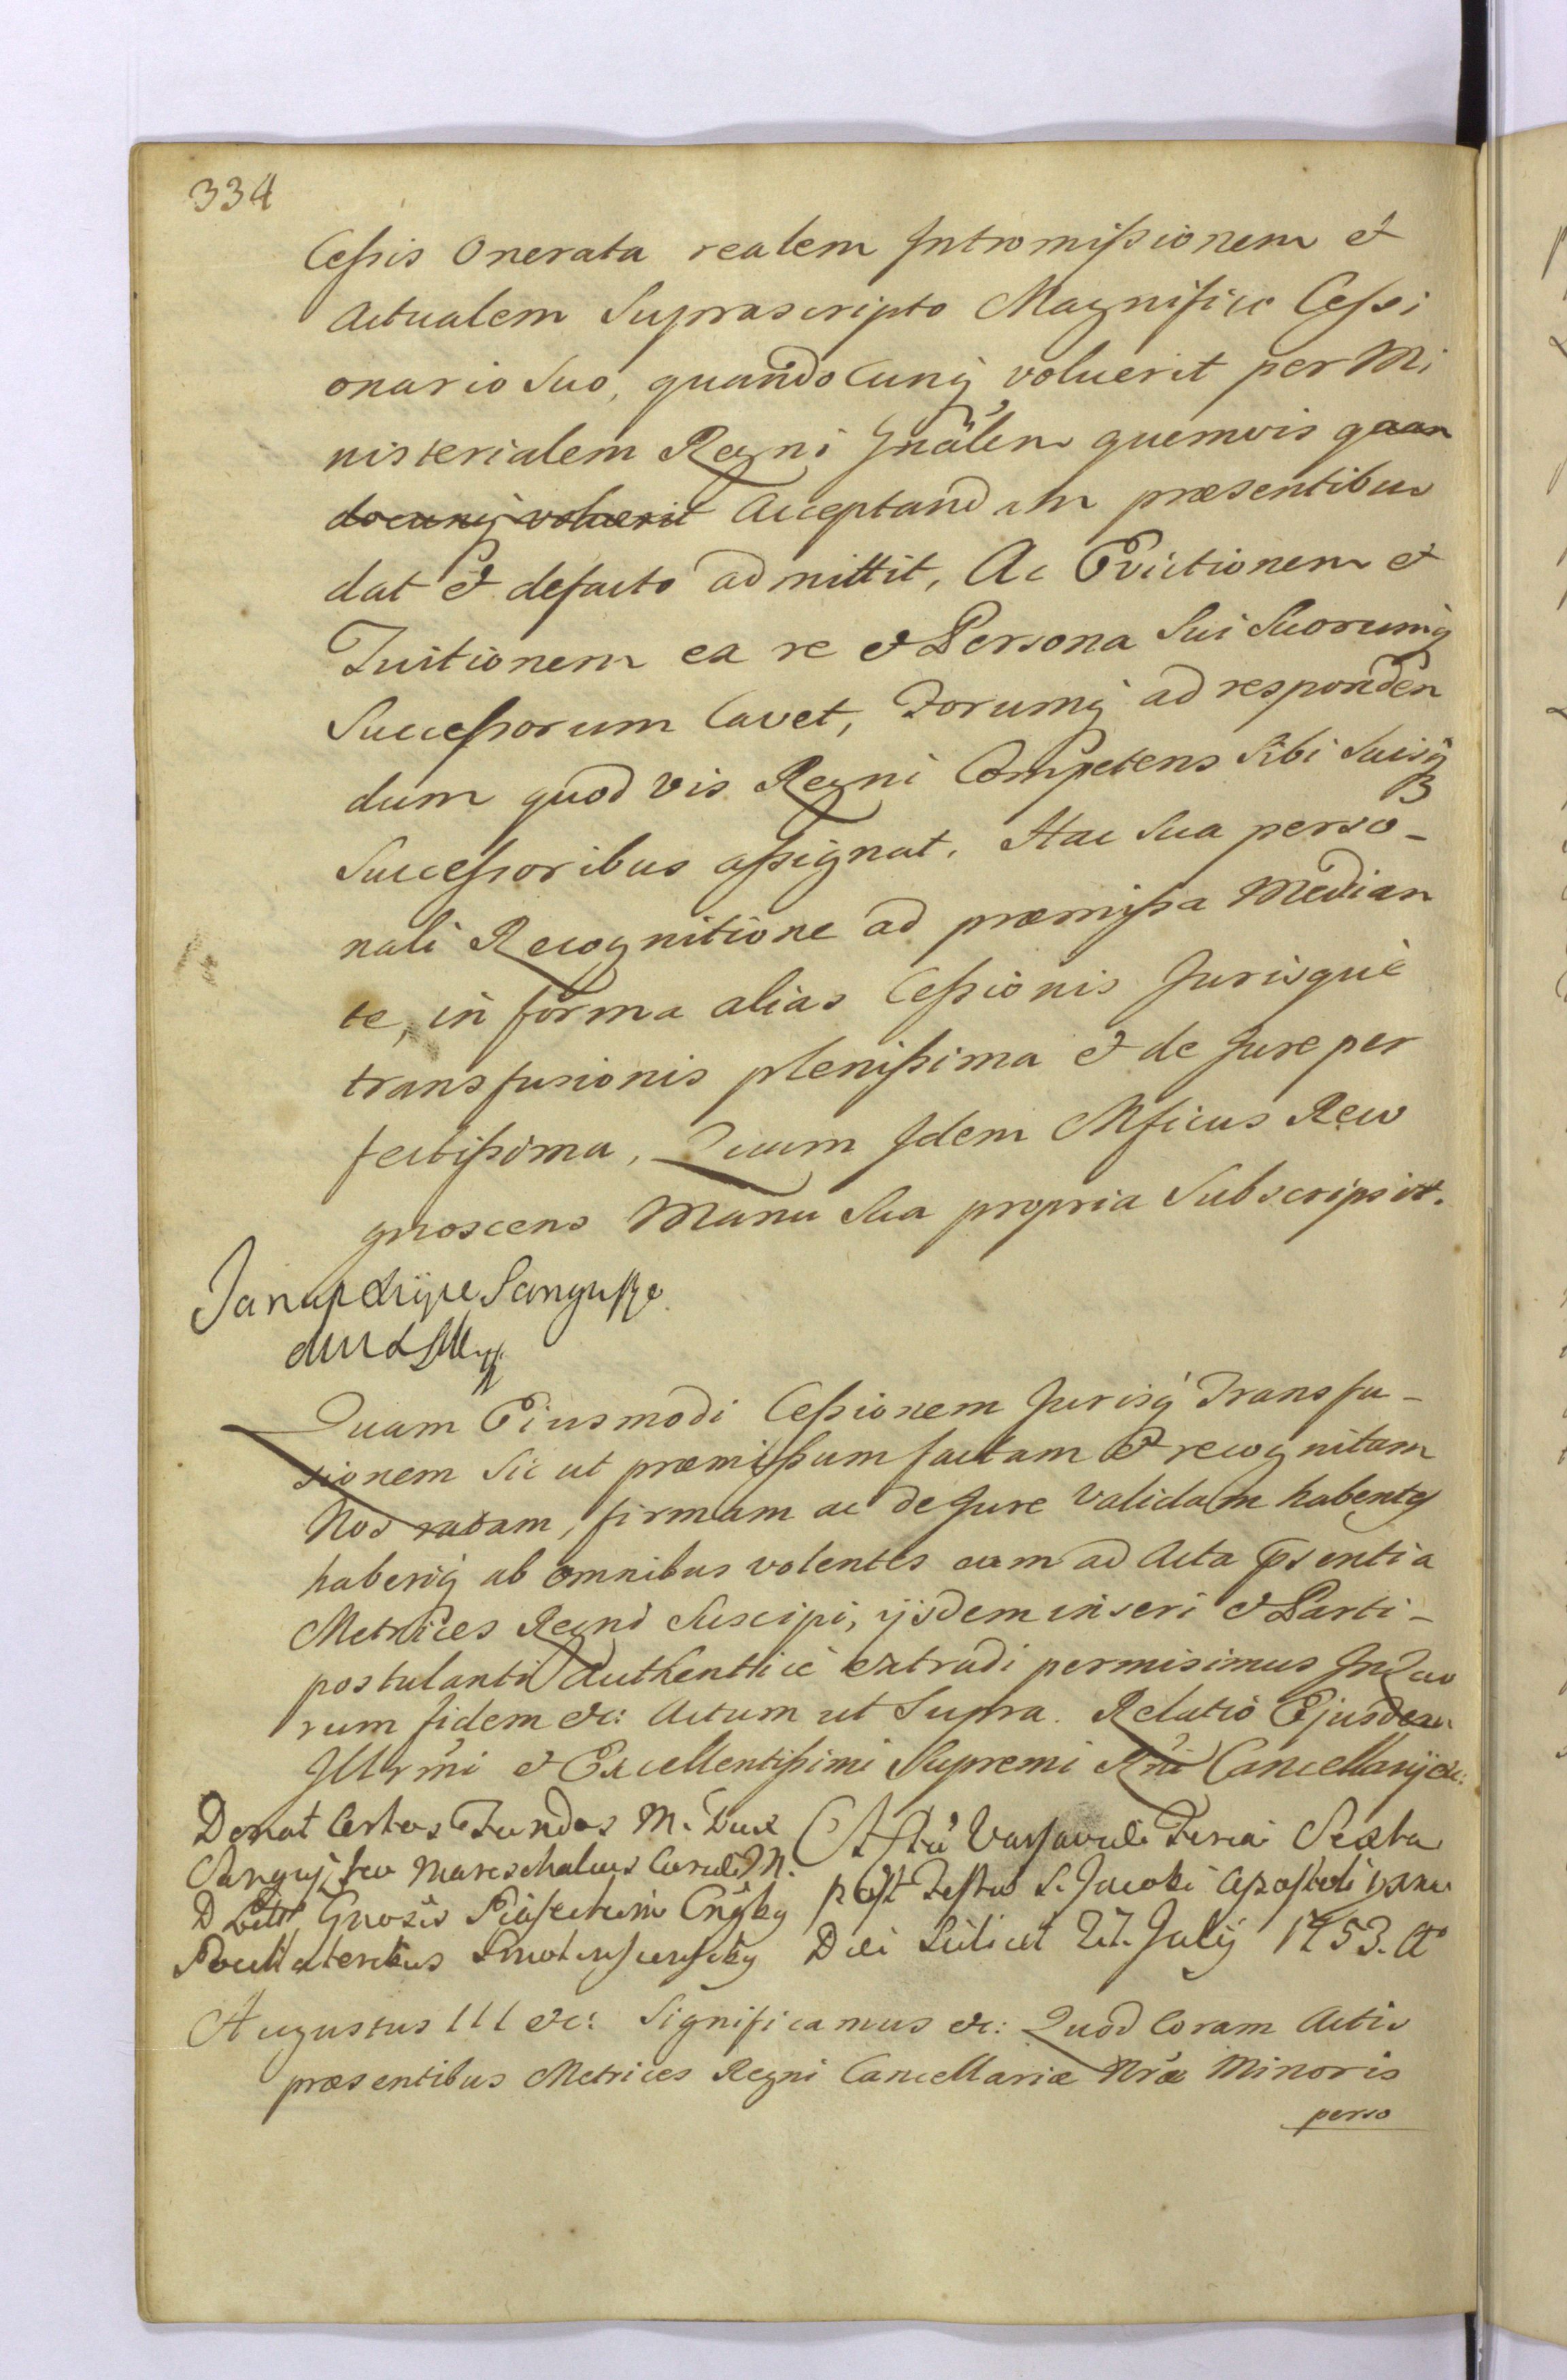 334
Cessis Onerata realem Intromissionem et
Actualem Suprascripto Magnifico Cessi
onario Suo, quandocunq voluerit per Mi
nisterialem Regni Gnãlem quemvis quan
docunq voluerit Acceptandam præsentibus
dat et defacto admittit, Ac Evictionem et
Tuitionem ea re et Persona Sui Suorumq
Successorum Cavet, Forumq ad responden
dum quodvis Regni Competens Sibi Suisq
Successoribus assignat. Hac Sua perso-
nali Recognitione ad præmissa Median
te, in forma alias Cessionis Jurisquè
transfusionis plenissima et de Jure per
fectissima, Quam Idem Mficus Reco
gnoscens Manu Sua propria Subscripsit.
Quam Eiusmodi Cessionem Jurisq Transfu-
sionem Sic ut præmissum factam et recognitam
Nos ratam, firmam ac de Jure Validam habentes
haberiq ab omnibus volentes eam ad Acta psentia
Metrices Regni Suscipi, ijsdem inseri et Parti-
postulanti Authenticè extradi permisimus In Quo
rum fidem etc: Actum ut Supra. Relatio Ejusdem
Illrmi et Excellentissimi Supremi Rni Cancellarij etc:
Donat Certos Fundos M. Dux
Sangusz̃ko Mareschalcus Curiæ M.
D Litt
Actũ Varsaviæ Feria Sexta
post Festum S. Jacobi Apostoli
Die Scilicet 27. Julij 1753. Aº
Augustus III etc: Significamus etc: Quod Coram Actis
præsentibus Metrices Regni Cancellariæ Nræ Minoris
perso